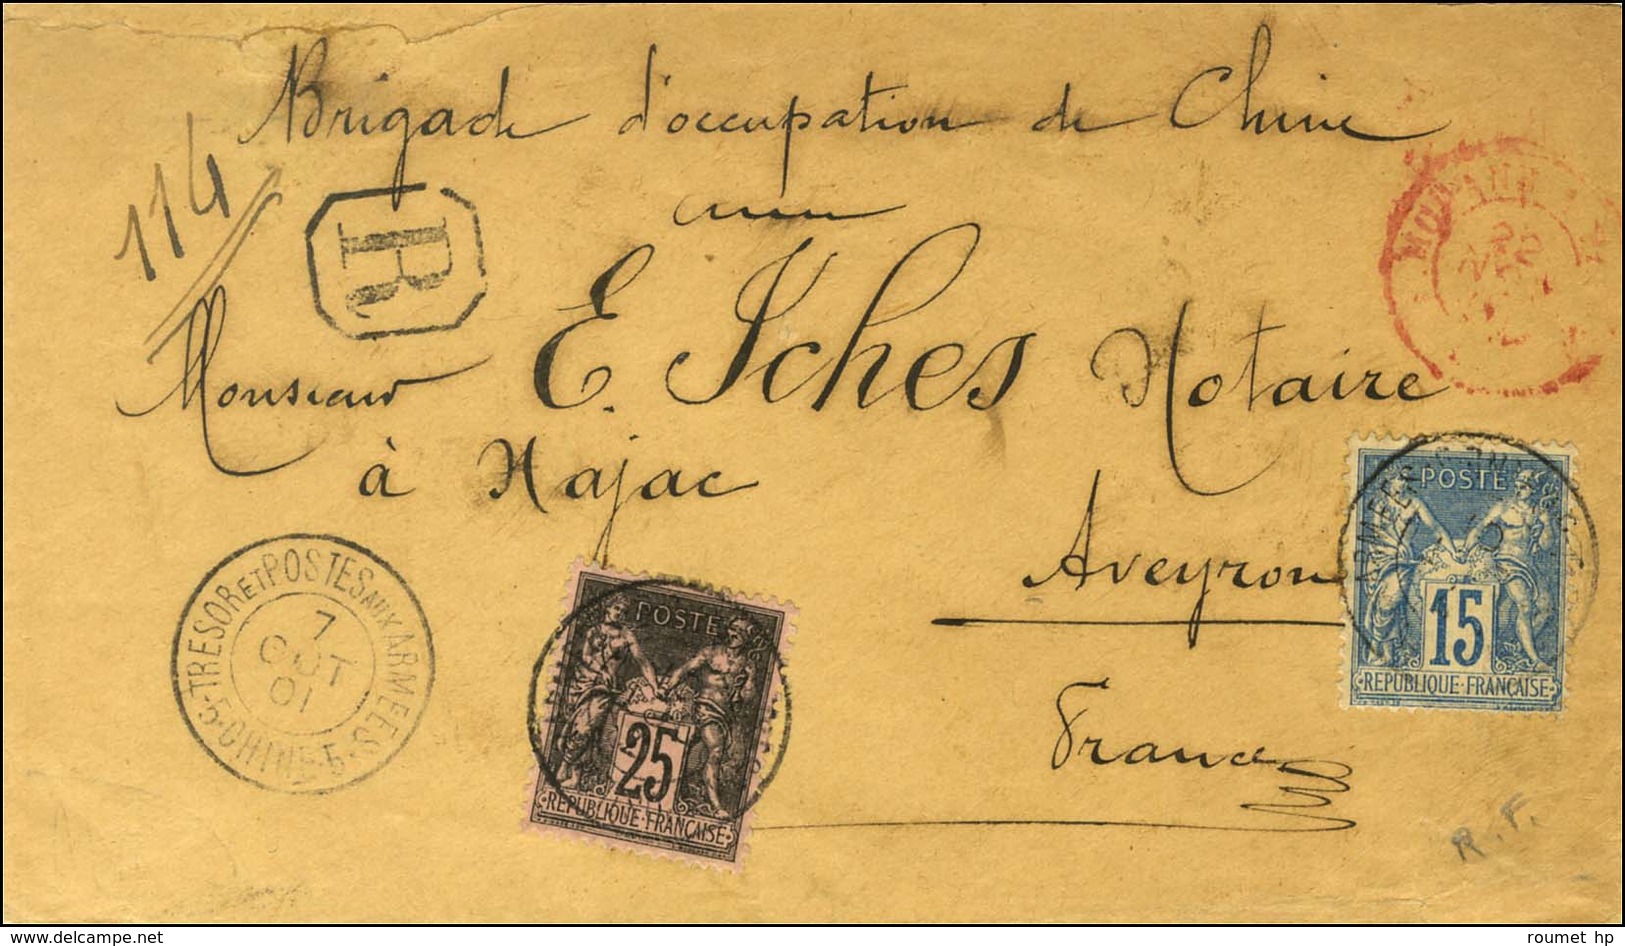 Brigade d'occupation de Chine
114
R
Monsieur E. Iches Notaire
à Najac
Aveyron
France
TRESOR ET POSTES AUX ARMEES
5·CHINE·5
7
OCT
01
POSTE
25
REPUBLIQUE·FRANÇAISE
POSTE
15
REPUBLIQUE·FRANÇAISE
R.F.
www.delcampe.net
roumet hp